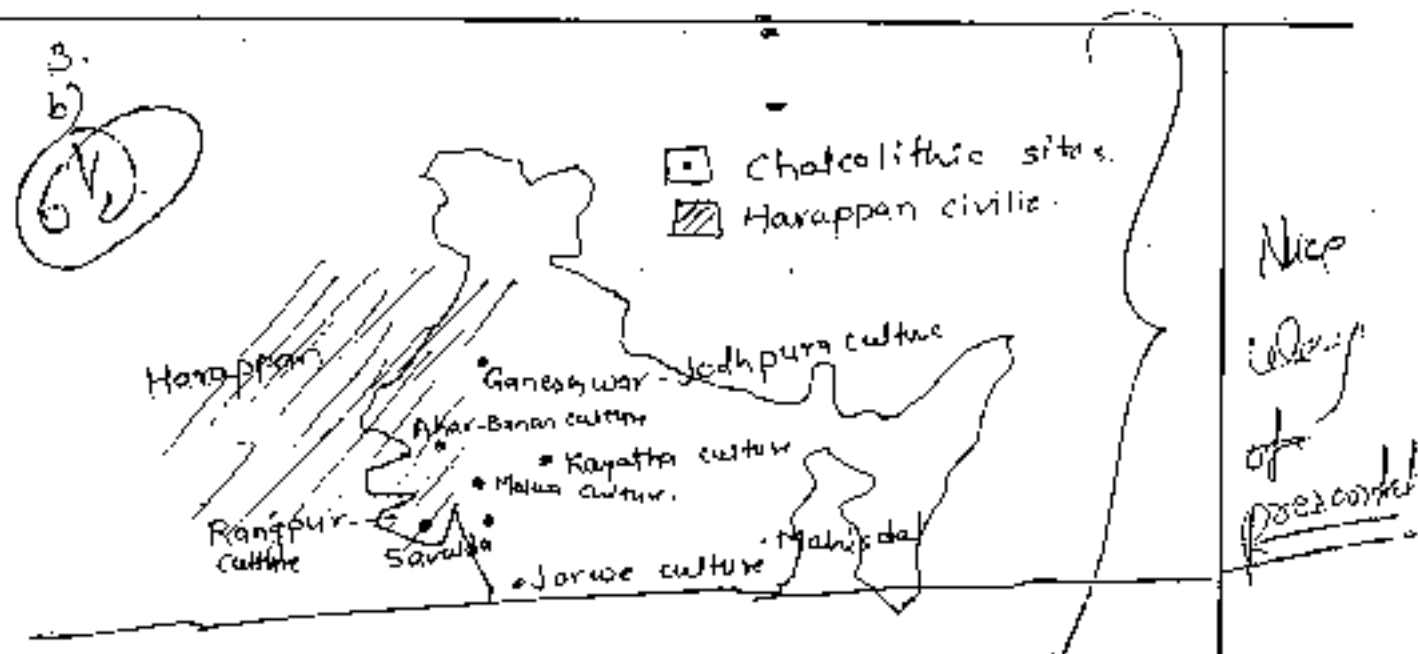 3.
b)
Chalcolithic sites.
Harappan civiliz.
Harappan
Ganeshwar-Jodhpura culture
Ahar-Banas culture
Kayatha culture
Malwa culture.
Rangpur
culture
Savalda
Jorwe culture
Mahisdal
Nice
idea
of